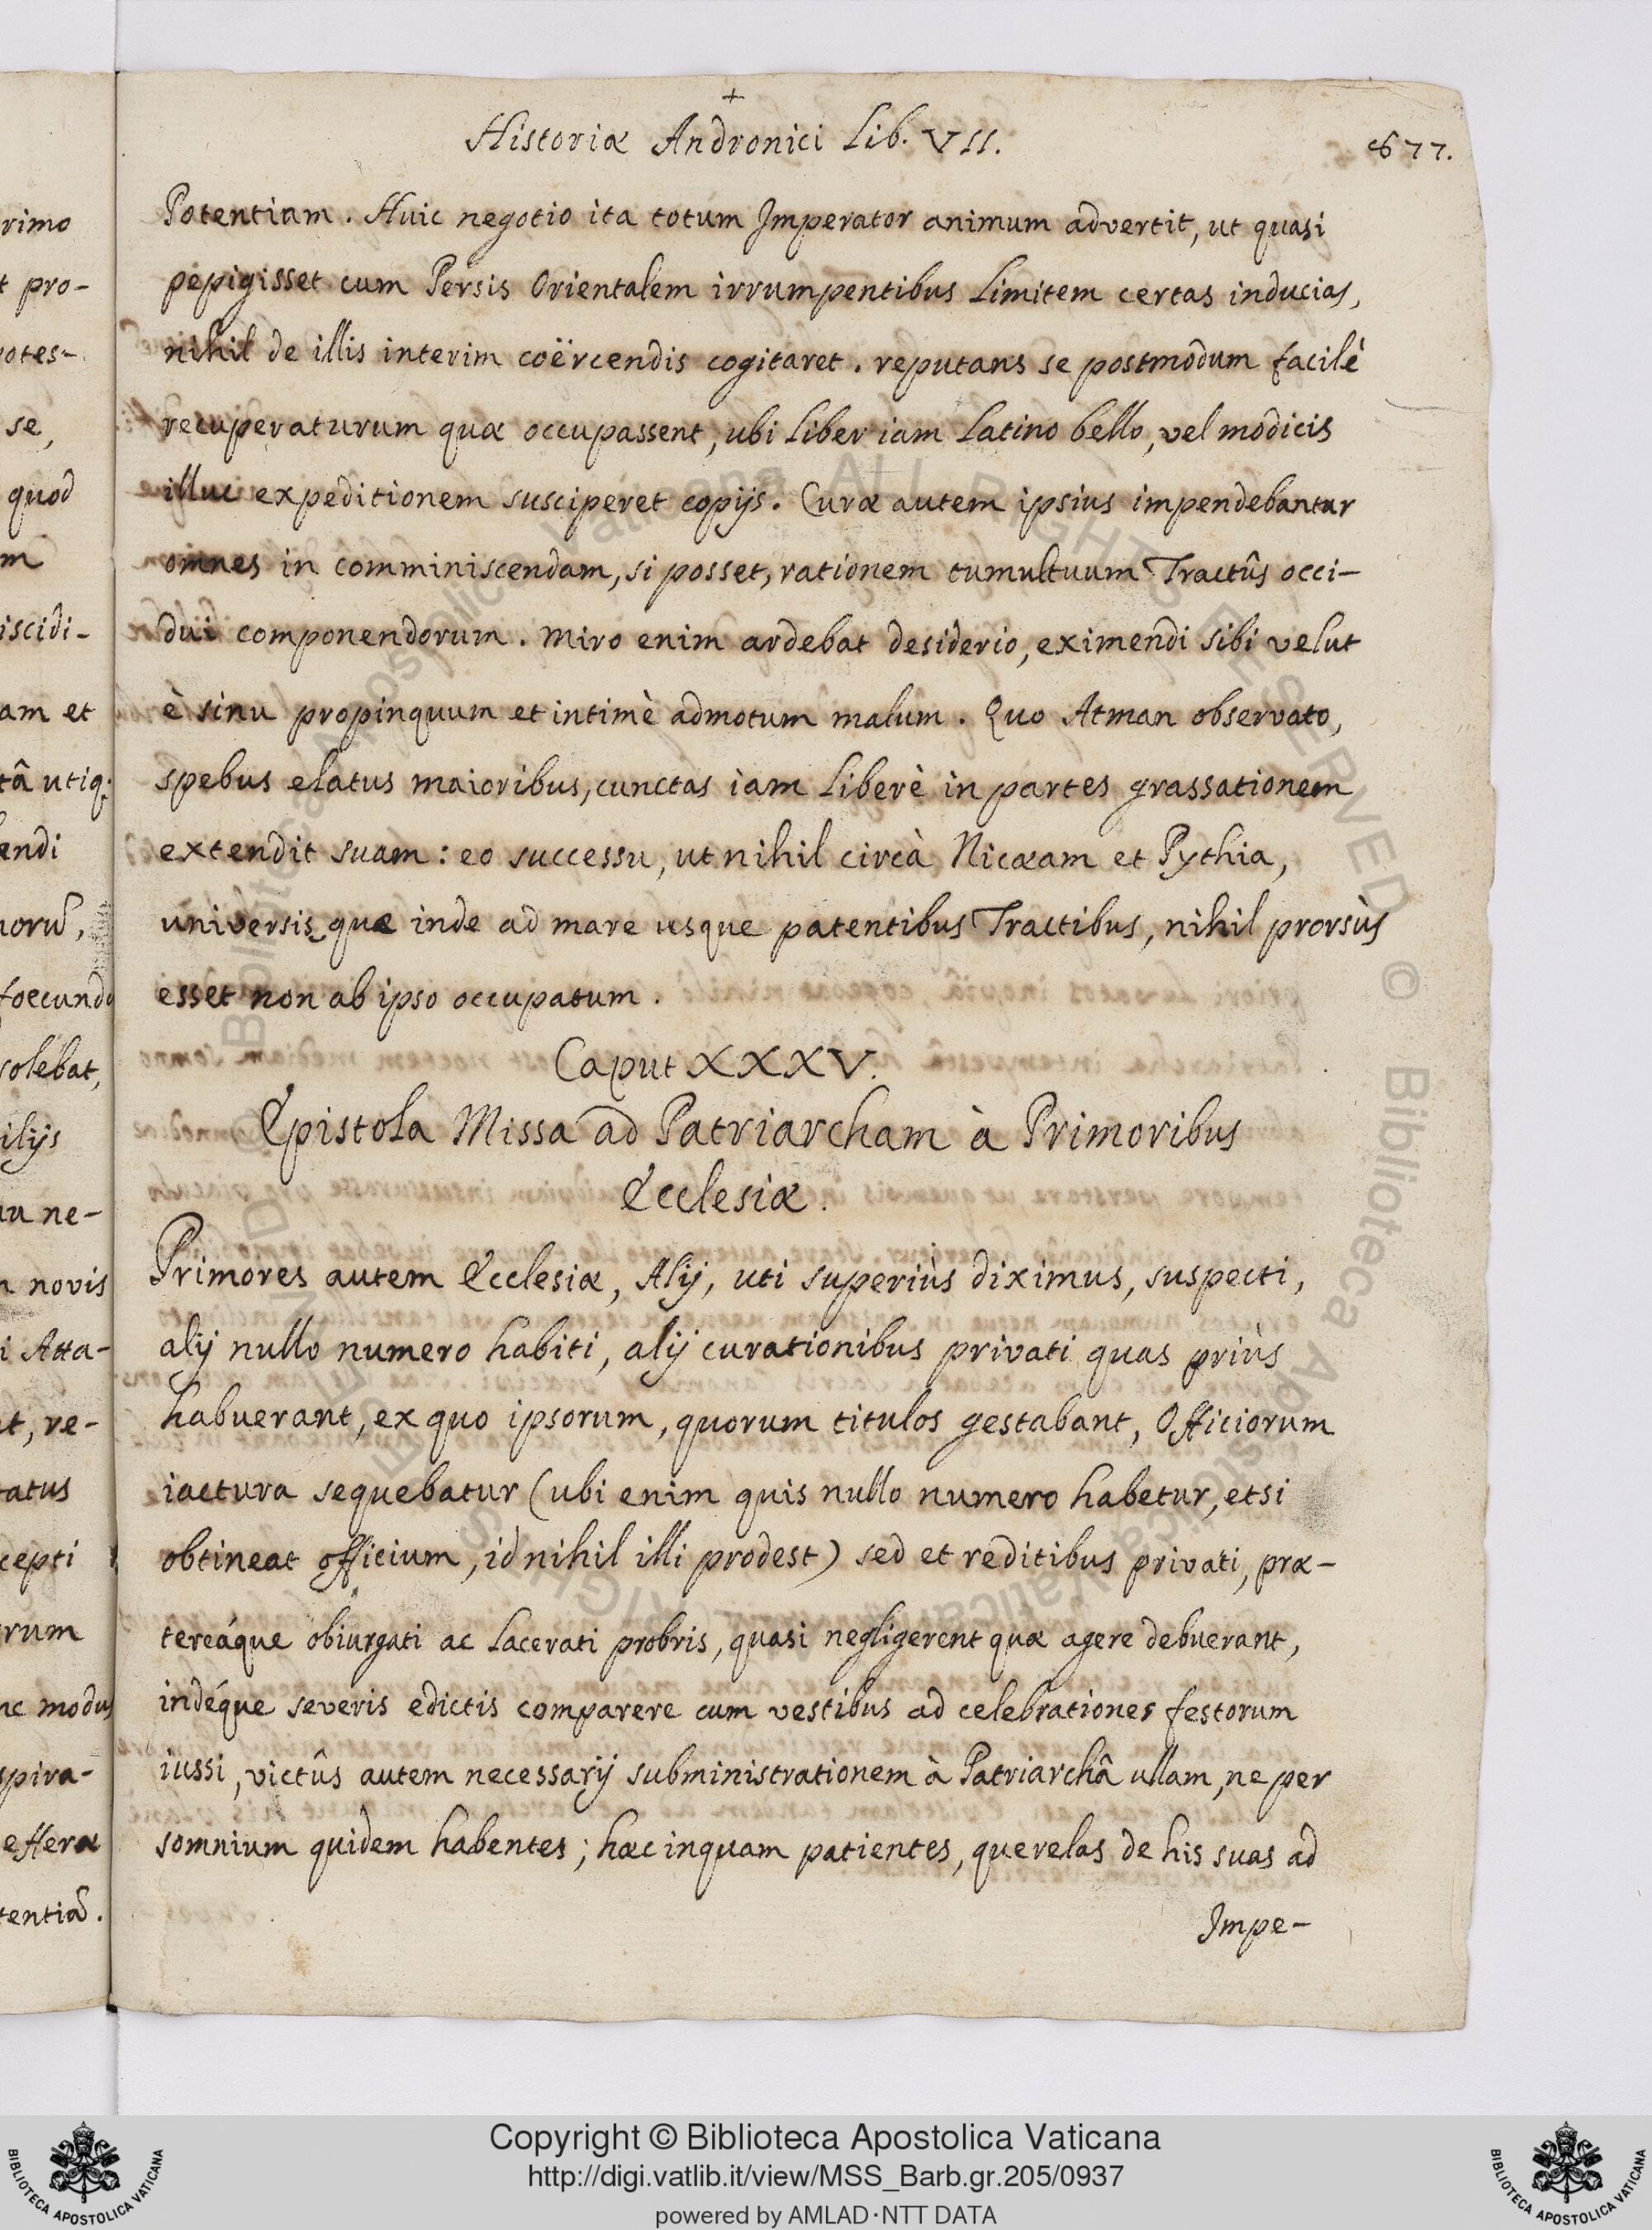 +
Historiæ Andronici Lib. VII.
677.
Potentiam. Huic negotio ita totum Imperator animum advertit, ut quasi
pepigisset cum Persis Orientalem irrumpentibus Limitem certas inducias,
nihil de illis interim coërcendis cogitaret. reputans se postmodum facilè
recuperaturum quæ occupassent, ubi Liber iam Latino bello, vel modicis
illuc expeditionem susciperet copijs. Curæ autem ipsius impendebantur
omnes in comminiscendam, si posset, rationem tumultuum Tractûs occi-
dui componendorum. Miro enim ardebat desiderio, eximendi sibi velut
è sinu propinquum et intimè admotum malum. Quo Atman observato,
spebus elatus maioribus, cunctas iam Liberè in partes grassationem
extendit suam: eo successu, ut nihil circà Nicæam et Pythia,
universis quæ inde ad mare usque patentibus Tractibus, nihil prorsùs
esset non ab ipso occupatum.
Caput XXXV.
Epistola Missa ad Patriarcham à Primoribus
Ecclesiæ.
Primores autem Ecclesiæ, Alij, uti superiùs diximus, suspecti,
alij nullo numero habiti, alij curationibus privati quas priùs
habuerant, ex quo ipsorum, quorum titulos gestabant, Officiorum
iactura sequebatur (ubi enim quis nullo numero habetur, etsi
obtineat officium, id nihil illi prodest) sed et reditibus privati, præ-
tereáque obiurgati ac Lacerati probris, quasi negligerent quæ agere debuerant,
indéque severis edictis comparere cum vestibus ad celebrationes festorum
iussi, victûs autem necessarij subministrationem à Patriarchâ ullam, ne per
somnium quidem habentes; hæc inquam patientes, querelas de his suas ad
Impe-
rimo
t pro-
potes-
se,
quod
m
iscidi-
am et
tâ utiq.
endi
norũ,
foecundo
solebat,
ilijs
ne-
novis
i Atta-
t, re-
tatus
cepti
rum
nc modus
spira-
efferæ
tentiã.
© Biblioteca Apostolica Vaticana ALL RIGHTS RESERVED
Copyright © Biblioteca Apostolica Vaticana
http://digi.vatlib.it/view/MSS_Barb.gr.205/0937
powered by AMLAD·NTT DATA
BIBLIOTECA APOSTOLICA VATICANA
BIBLIOTECA APOSTOLICA VATICANA